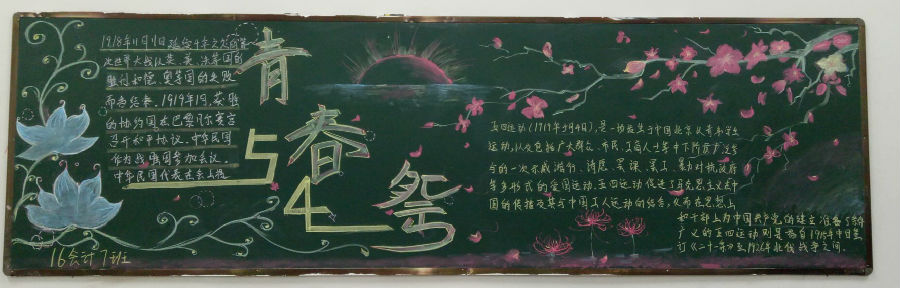 1918年11月11日延续4年之久的第
次世界大战以英、美、法等国的
胜利和德、奥等国的失败
而告结束。1919年1月,获胜
的协约国在巴黎凡尔赛宫
召开和平协议。中华民国
作为战胜国参加会议。
中华民国代表在会上提
16会计7班
青春祭
5 4
五四运动(1919年5月4日),是一场发生于中国北京以青年学生
运动,以及包括广大群众、市民、工商人士等中下阶层广泛参
与的一次示威游行、请愿、罢课、罢工、暴力对抗政府
等多形式的爱国运动。五四运动促进了马克思主义在中
国的传播及其与中国工人运动的结合,从而在思想上
和干部上为中国共产党的建立准备了条件
广义的五四运动则是指自1915年中日签
订《二十一条》至1926年北伐战争之间。